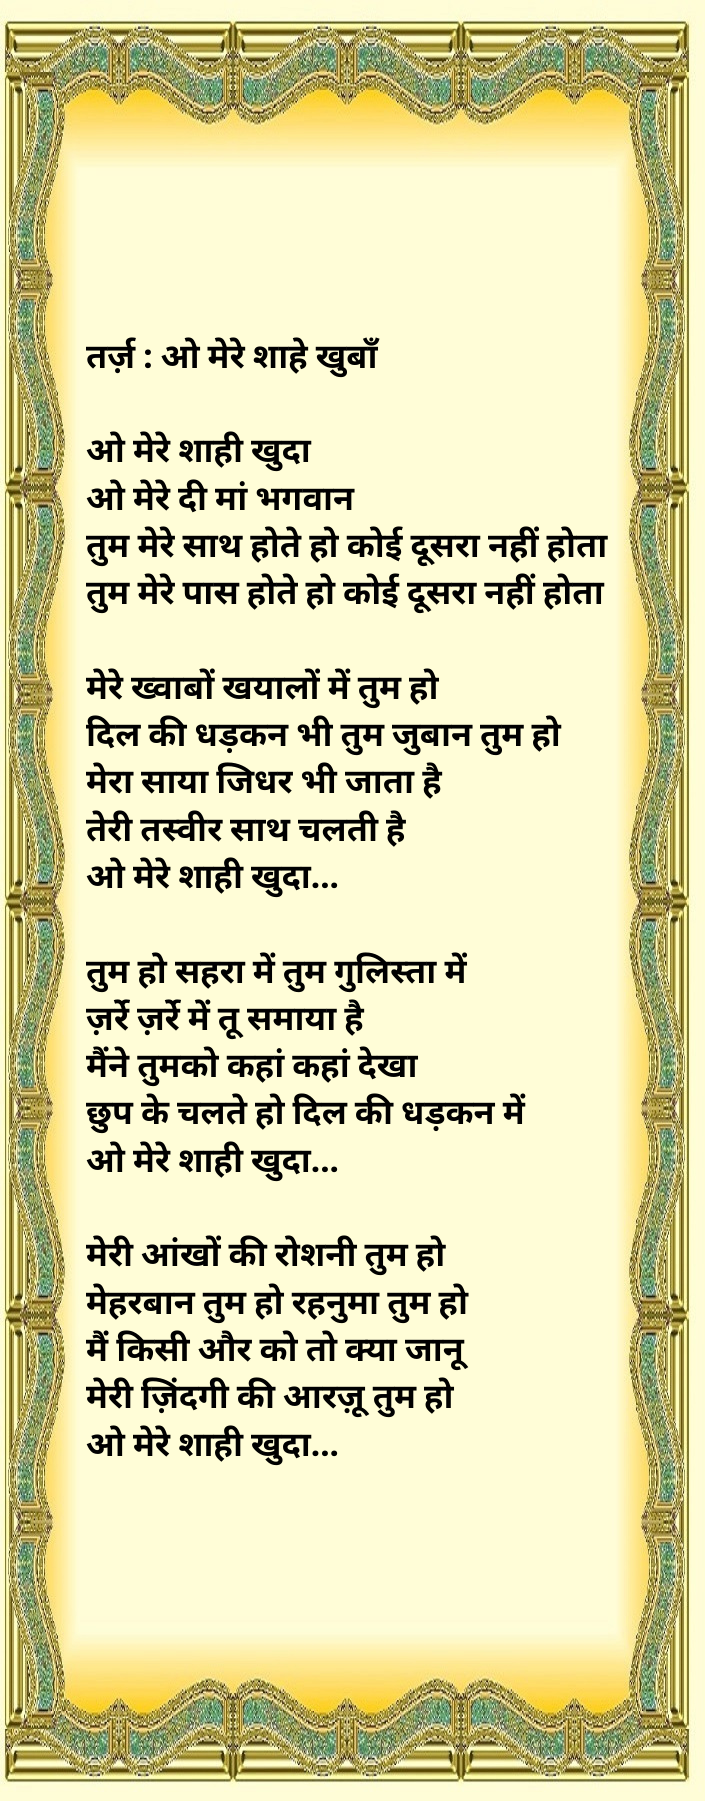 तर्ज़ : ओ मेरे शाहे खुबाँ
ओ मेरे शाही खुदा
ओ मेरे दी मां भगवान
तुम मेरे साथ होते हो कोई दूसरा नहीं होता
तुम मेरे पास होते हो कोई दूसरा नहीं होता
मेरे ख्वाबों खयालों में तुम हो
दिल की धड़कन भी तुम जुबान तुम हो
मेरा साया जिधर भी जाता है
तेरी तस्वीर साथ चलती है
ओ मेरे शाही खुदा...
तुम हो सहरा में तुम गुलिस्ता में
ज़र्रे ज़र्रे में तू समाया है
मैंने तुमको कहां कहां देखा
छुप के चलते हो दिल की धड़कन में
ओ मेरे शाही खुदा...
मेरी आंखों की रोशनी तुम हो
मेहरबान तुम हो रहनुमा तुम हो
मैं किसी और को तो क्या जानू
मेरी ज़िंदगी की आरज़ू तुम हो
ओ मेरे शाही खुदा...